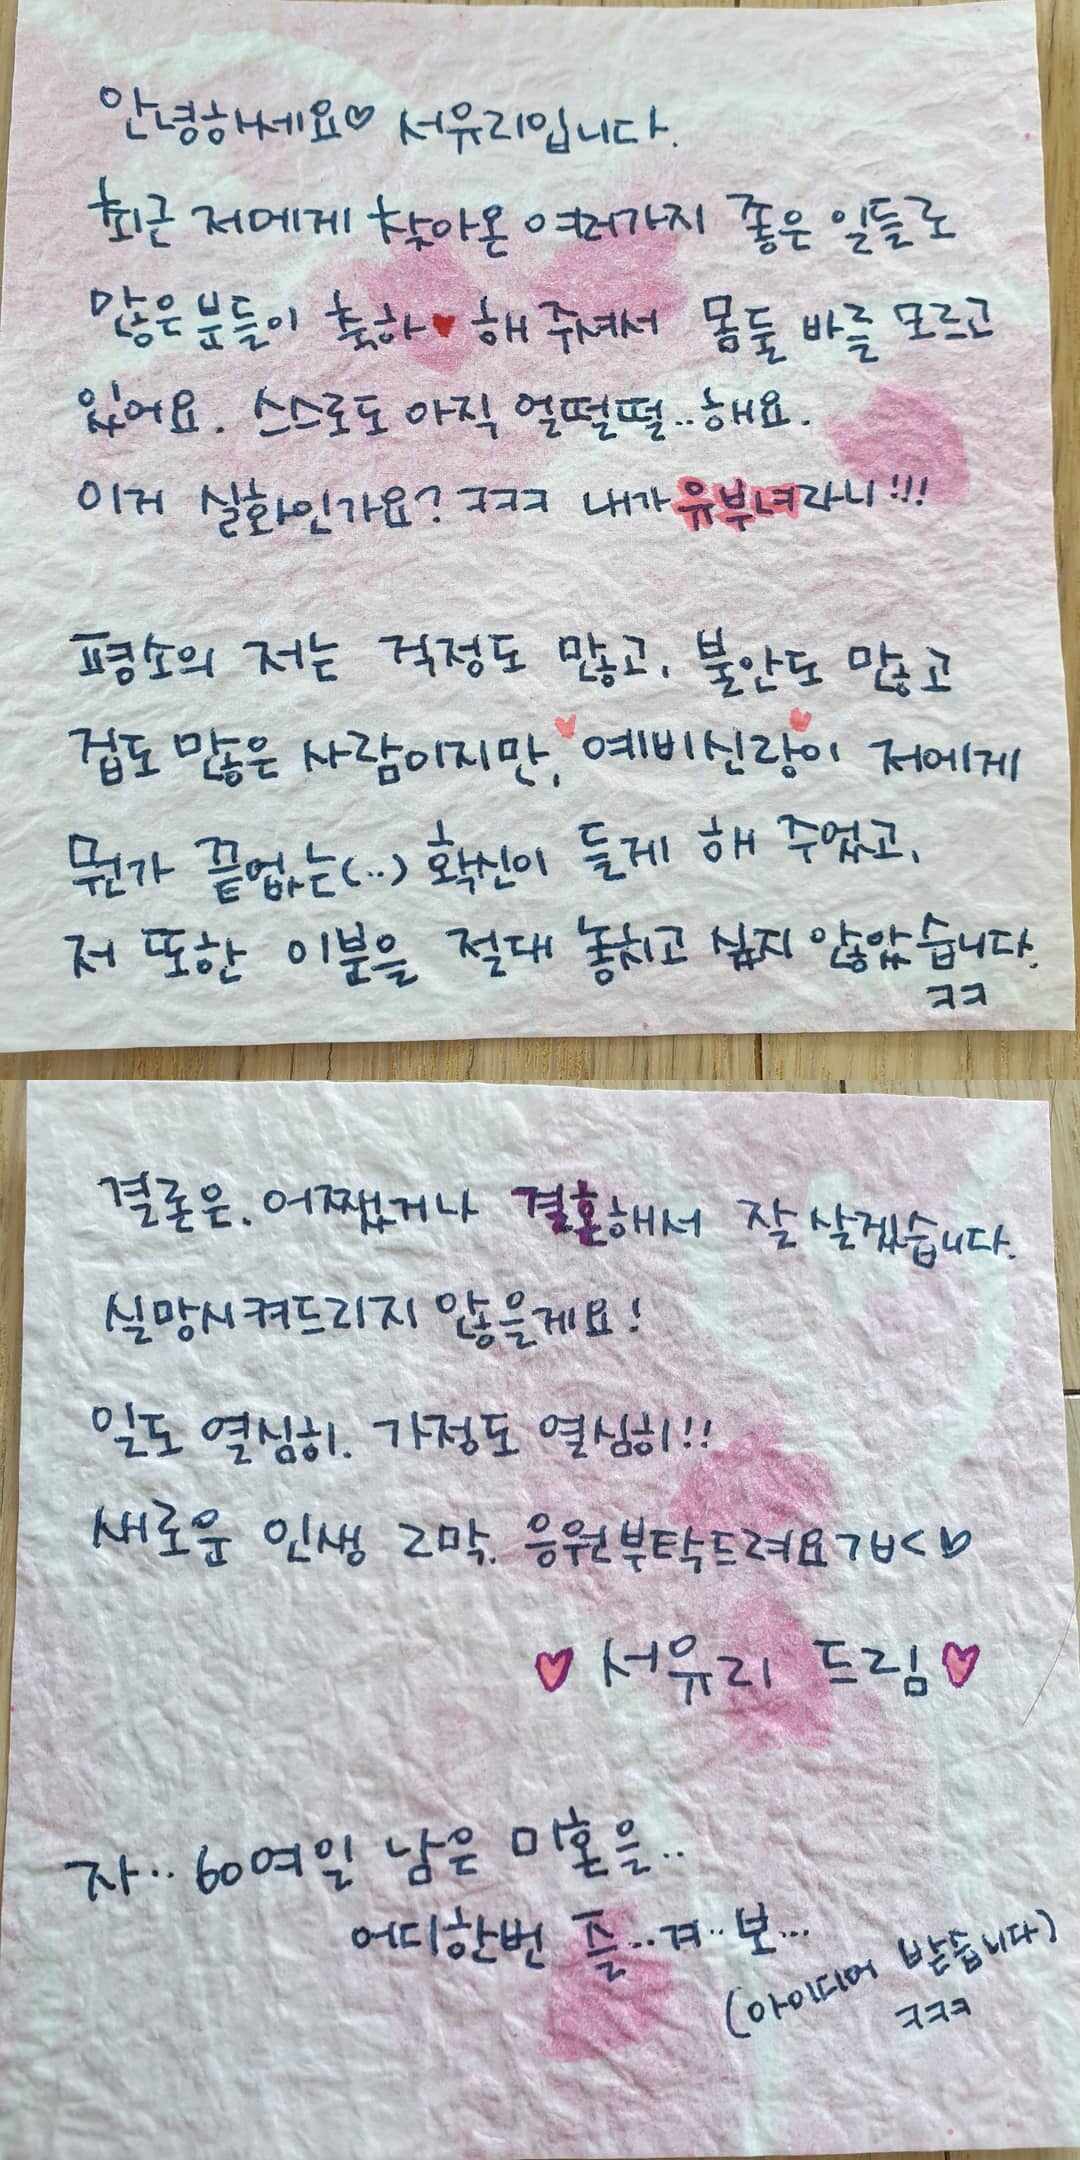 안녕하세요♡ 서유리입니다.
최근 저에게 찾아온 여러가지 좋은 일들로
많은분들이 축하♥해 주셔서 몸둘 바를 모르고
있어요. 스스로도 아직 얼떨떨..해요.
이거 실화인가요? ㅋㅋㅋ 내가 유부녀라니!!!
평소의 저는 걱정도 많고, 불안도 많고
겁도 많은 사람이지만, ♥예비신랑♥이 저에게
뭔가 끝없는(..) 확신이 들게 해 주었고,
저 또한 이분을 절대 놓치고 싶지 않았습니다.
ㅋㅋ
결론은, 어쨌거나 결혼해서 잘 살겠습니다.
실망시켜드리지 않을게요!
일도 열심히. 가정도 열심히!!
새로운 인생 2막, 응원부탁드려요 ㄱㅂ<♡
♥ 서유리 드림♥
자.. 60여일 남은 미혼을..
어디한번 즐...겨..보...
(아이디어 받습니다)
ㅋㅋㅋ